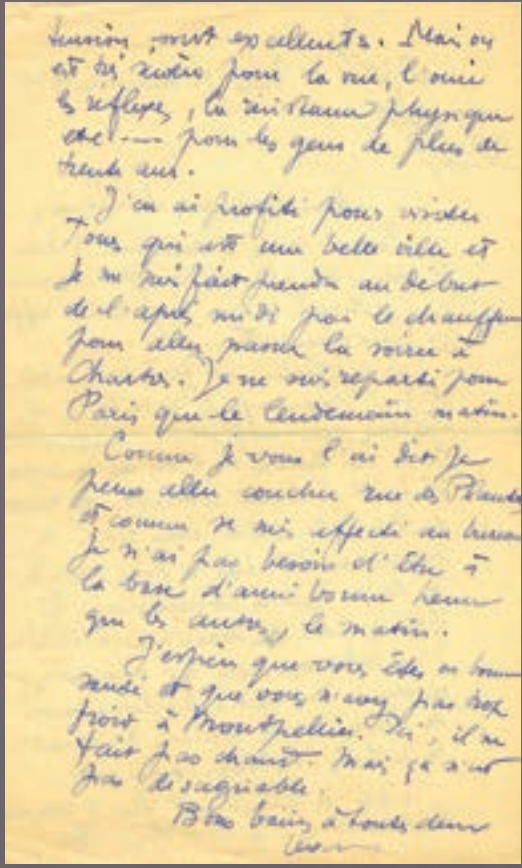 tension, sont excellents. Mais on
est très sévère pour la vue, l'ouïe
les réflexes, la résistance physique
etc --- pour les gens de plus de
trente ans.
J'en ai profité pour visiter
Tours qui est une belle ville et
je me suis fait prendre au début
de l'après midi par le chauffeur
pour aller passer la soirée à
Chartres. Je ne suis reparti pour
Paris que le lendemain matin.
Comme je vous l'ai dit je
peux aller coucher rue des Plantes
et comme je suis affecté au bureau
je n'ai pas besoin d'être à
la base d'aussi bonne heure
que les autres, le matin.
J'espère que vous êtes en bonne
santé et que vous n'avez pas trop
froid à Montpellier. Ici, il ne
fait pas chaud. Mais ça n'est
pas désagréable.
Bons baisers à toutes deux